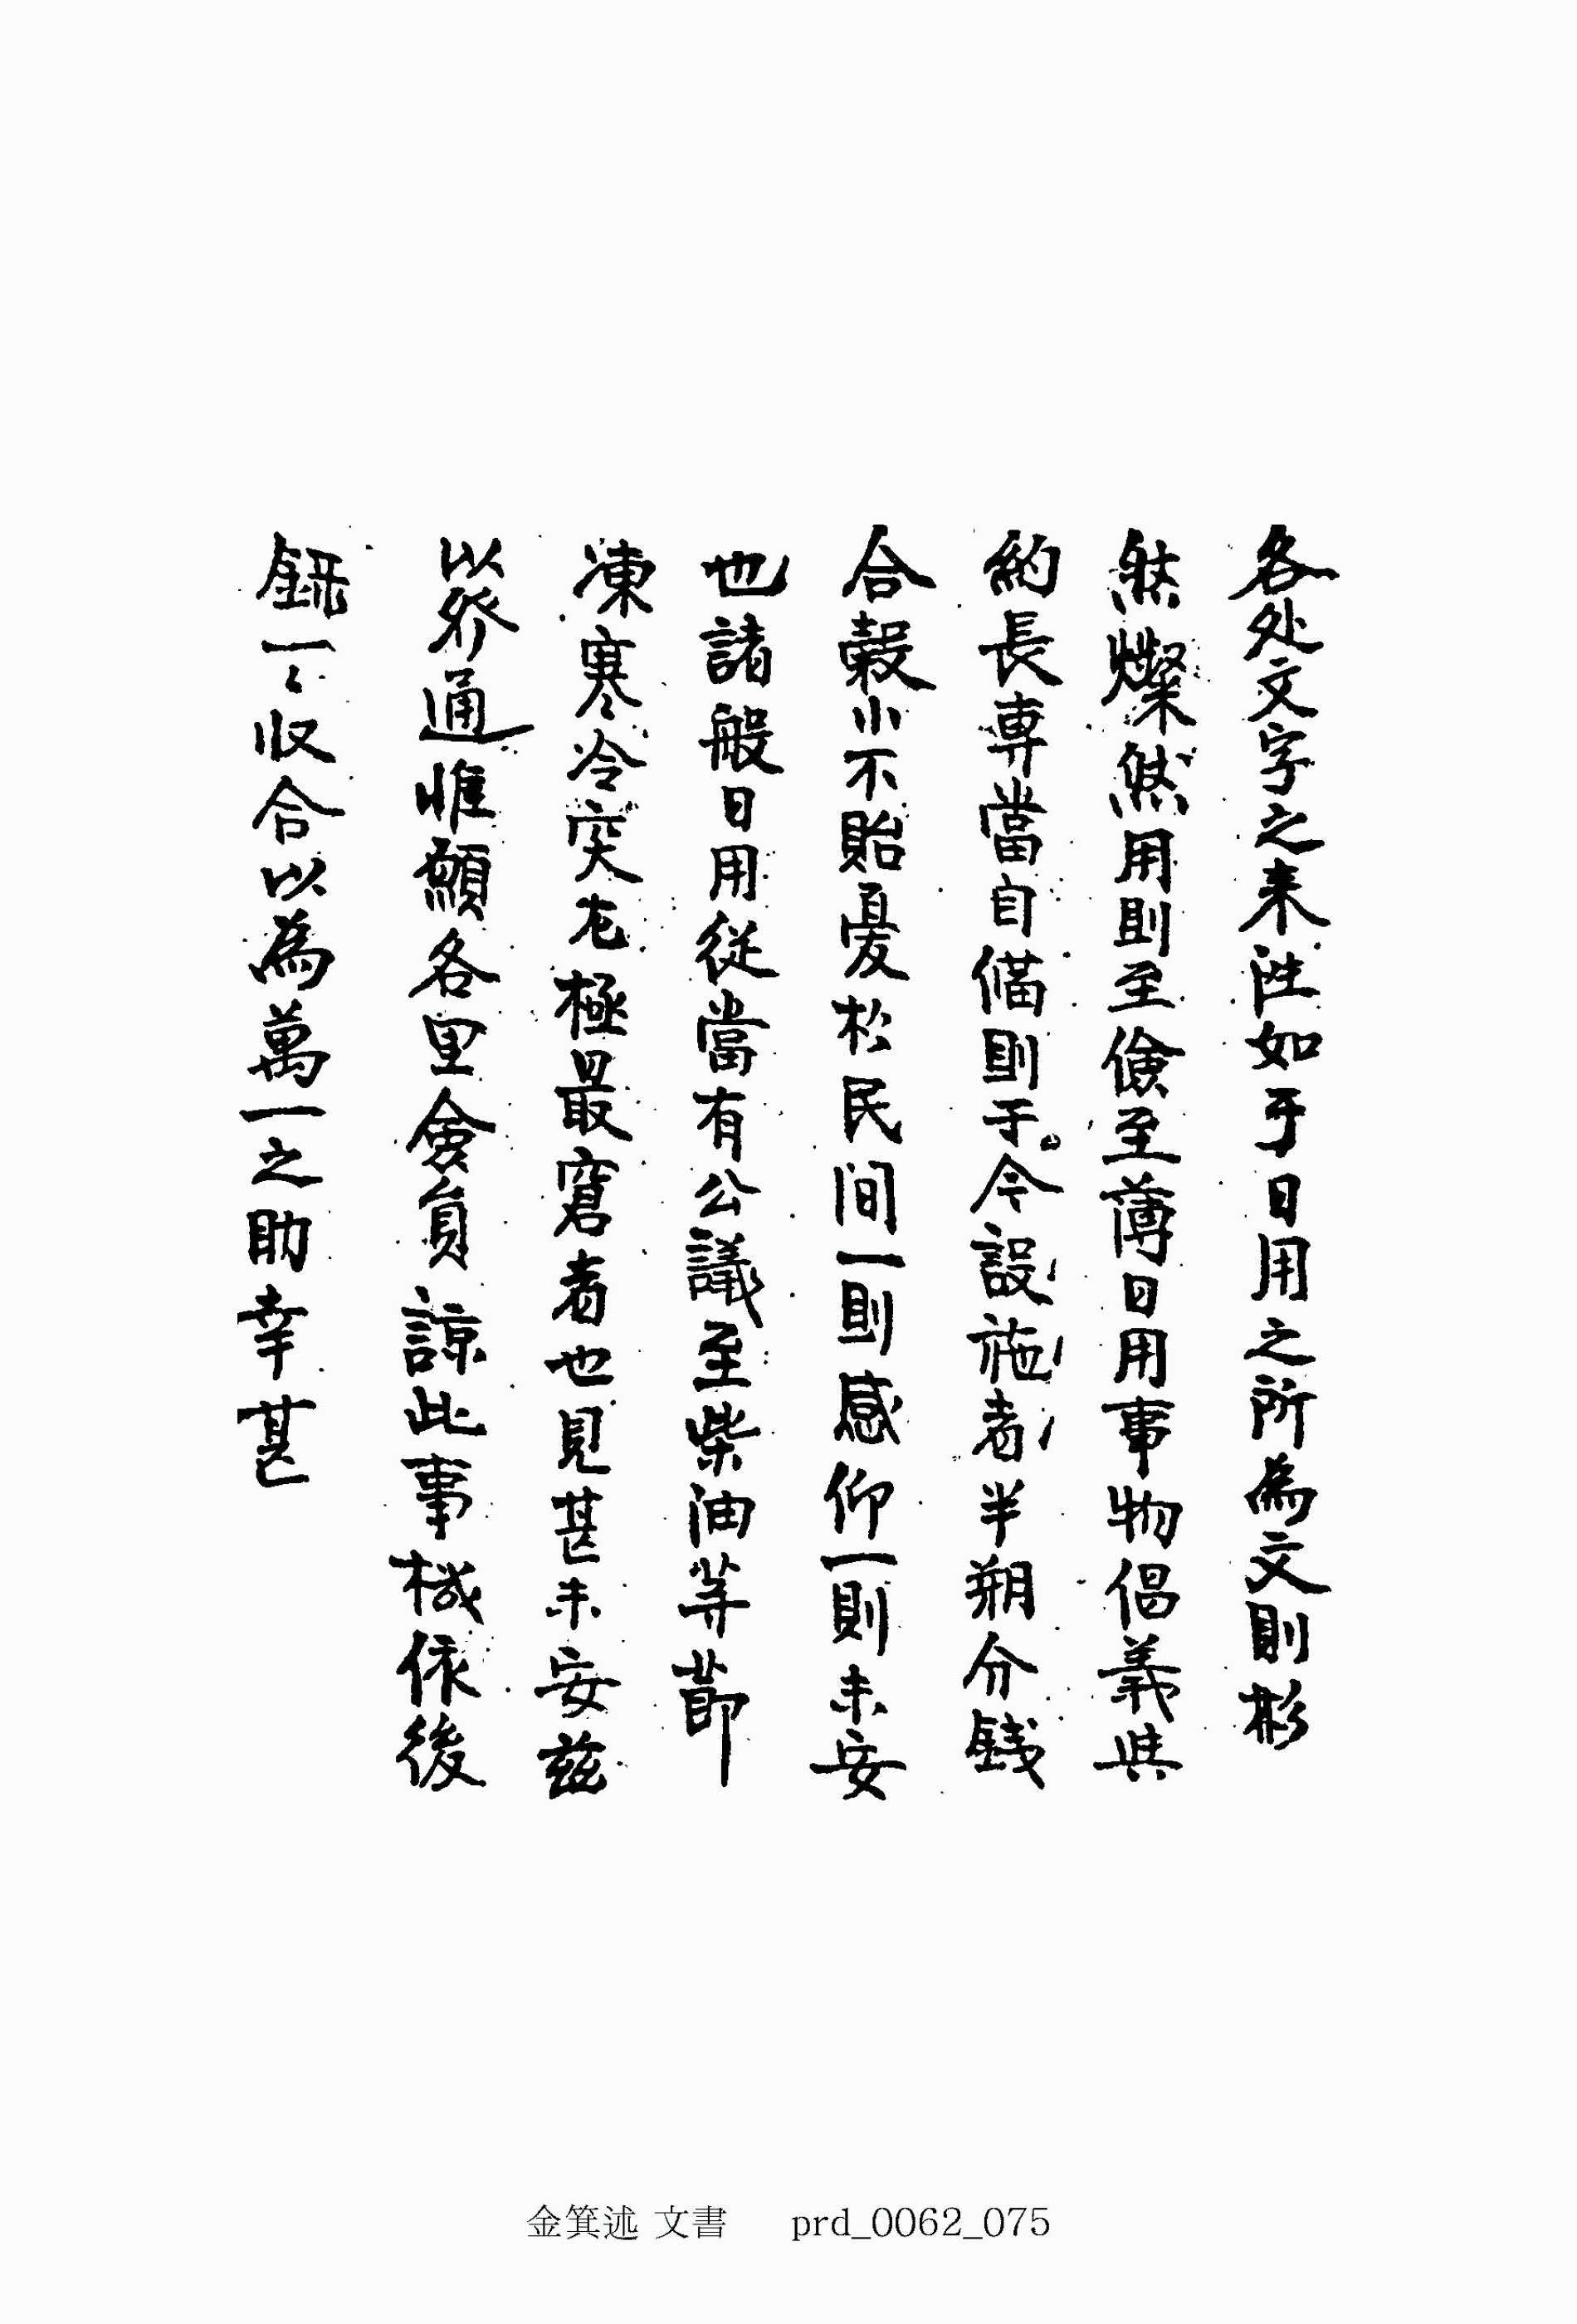 各处文字之来泩如于日用之所為文則彬
然燦然用則至儉至薄日用事物倡義典
約長專當自備則于今設施者半朔分錢
合穀小不貽憂於民间一則感仰一則未安
也諸般日用從當有公議至柴油等節
凍寒冷突尤極最窘者也見甚未安茲
以發通惟願各里僉員諒此事機依後
錄一〻收合以為萬一之助幸甚
金箕述 文書 prd_0062_075